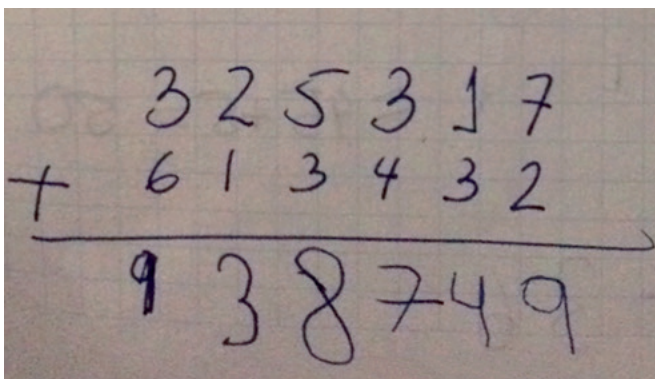 325317
+ 613432
938749